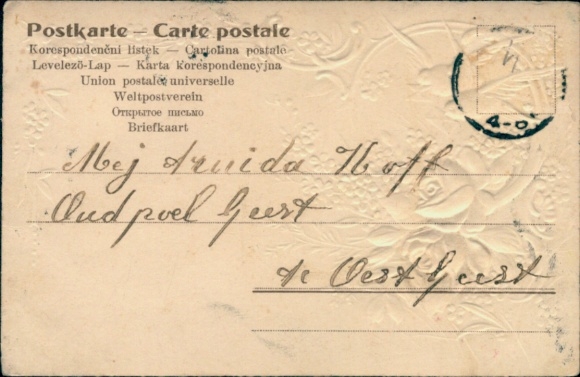 Postkarte — Carte postale
Korespondenční listek — Cartolina postale
Levelező-Lap — Karta korespondencyjna
Union postale universelle
Weltpostverein
Открытое письмо
Briefkaart
4-5
Mej Aruida Hoff
Oudpoel Geest
te Oest Geest